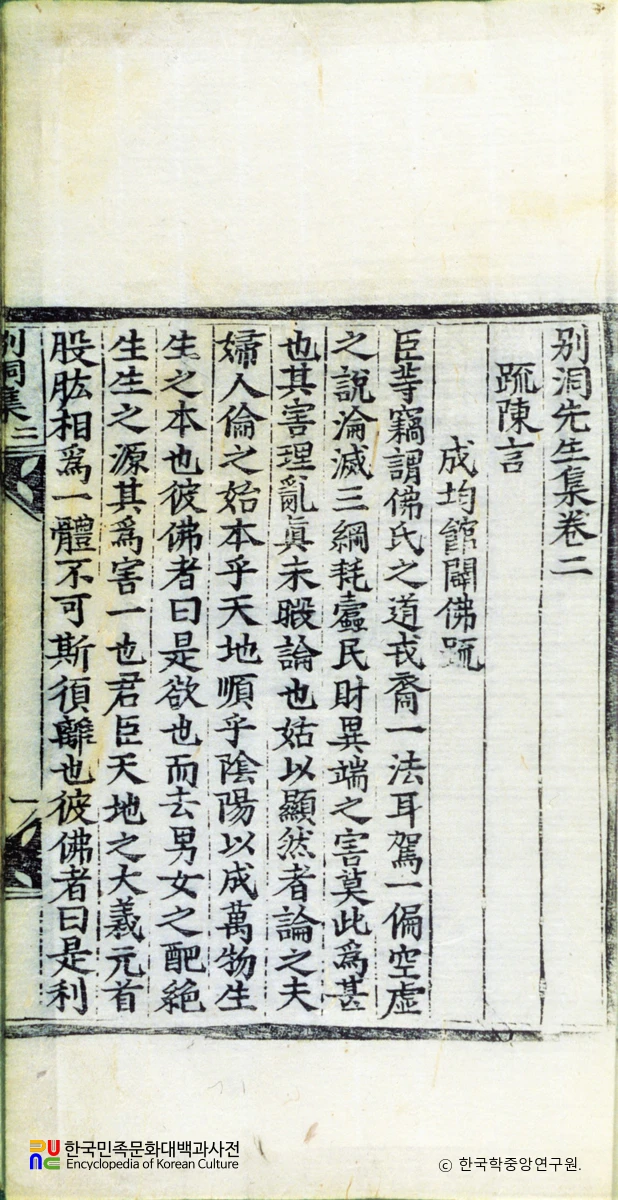 別洞先生集卷二
疏陳言
成均館闢佛疏
臣等竊謂佛氏之道戎裔一法耳駕一偏空虛
之說淪滅三綱耗蠹民財異端之害莫此爲甚
也其害理亂眞未暇論也姑以顯然者論之夫
婦人倫之始本乎天地順乎陰陽以成萬物生
生之本也彼佛者曰是欲也而去男女之配絶
生生之源其爲害一也君臣天地之大義元首
股肱相爲一體不可斯須離也彼佛者曰是利
別洞集二
一
한국민족문화대백과사전
Encyclopedia of Korean Culture
© 한국학중앙연구원.